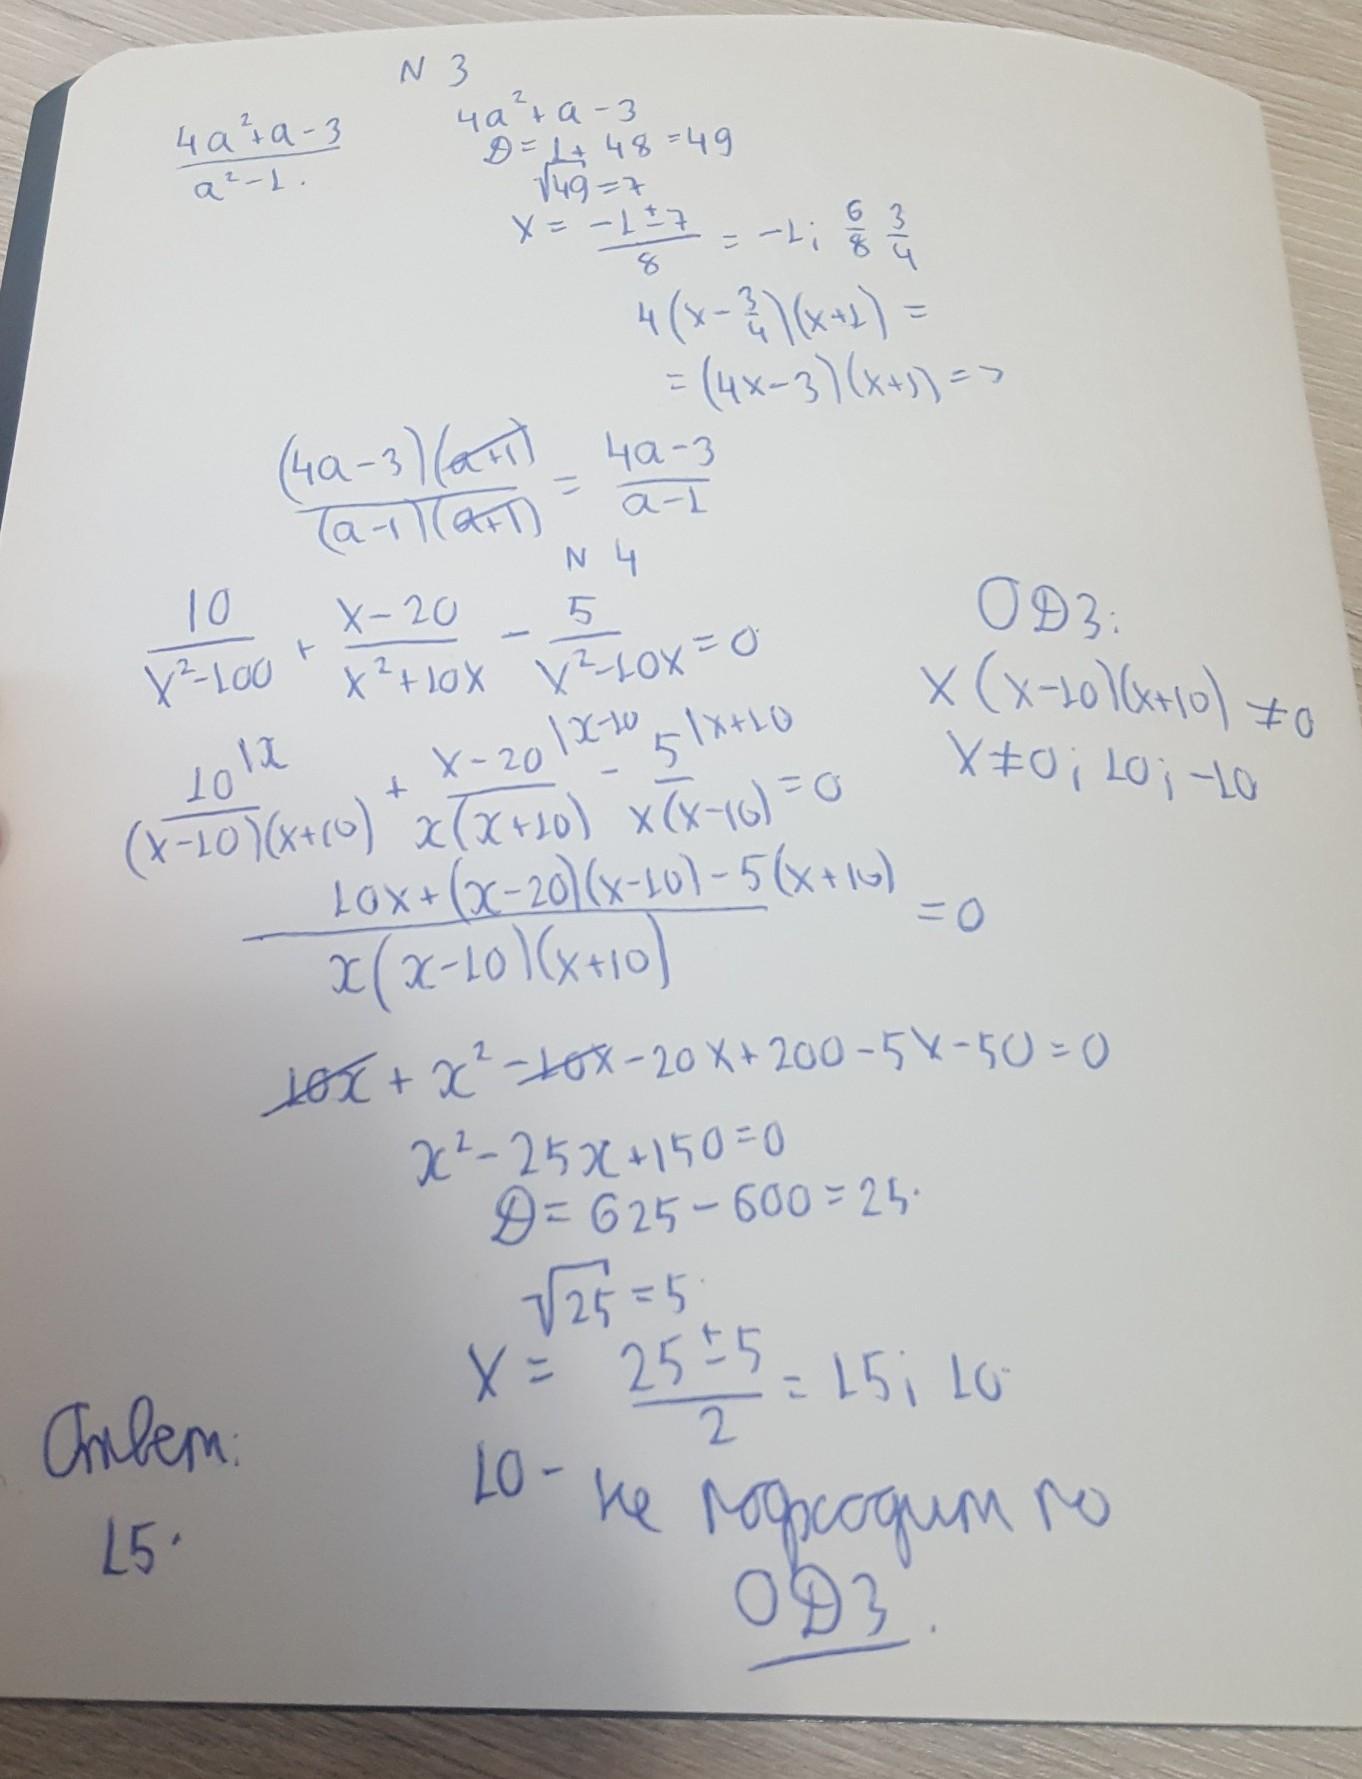 N 3
(4a²+a-3)/(a²-1).
4a²+a-3
D=1+48=49
√49=7
x=(-1±7)/8=-1; 6/8 3/4
4(x-3/4)(x+1)=
=(4x-3)(x+1)=>
((4a-3)(a+1))/((a-1)(a+1))=(4a-3)/(a-1)
N 4
10/(x²-100)+(x-20)/(x²+10x)-5/(x²-10x)=0
ОДЗ:
x(x-10)(x+10)≠0
x≠0; 10; -10
10|x/((x-10)(x+10))+x-20|x-10/(x(x+10))-5|x+10/(x(x-10))=0
(10x+(x-20)(x-10)-5(x+10))/(x(x-10)(x+10))=0
10x+x²-10x-20x+200-5x-50=0
x²-25x+150=0
D=625-600=25.
√25=5
x=(25±5)/2=15; 10
10- не подходит по
ОДЗ.
Ответ:
15.